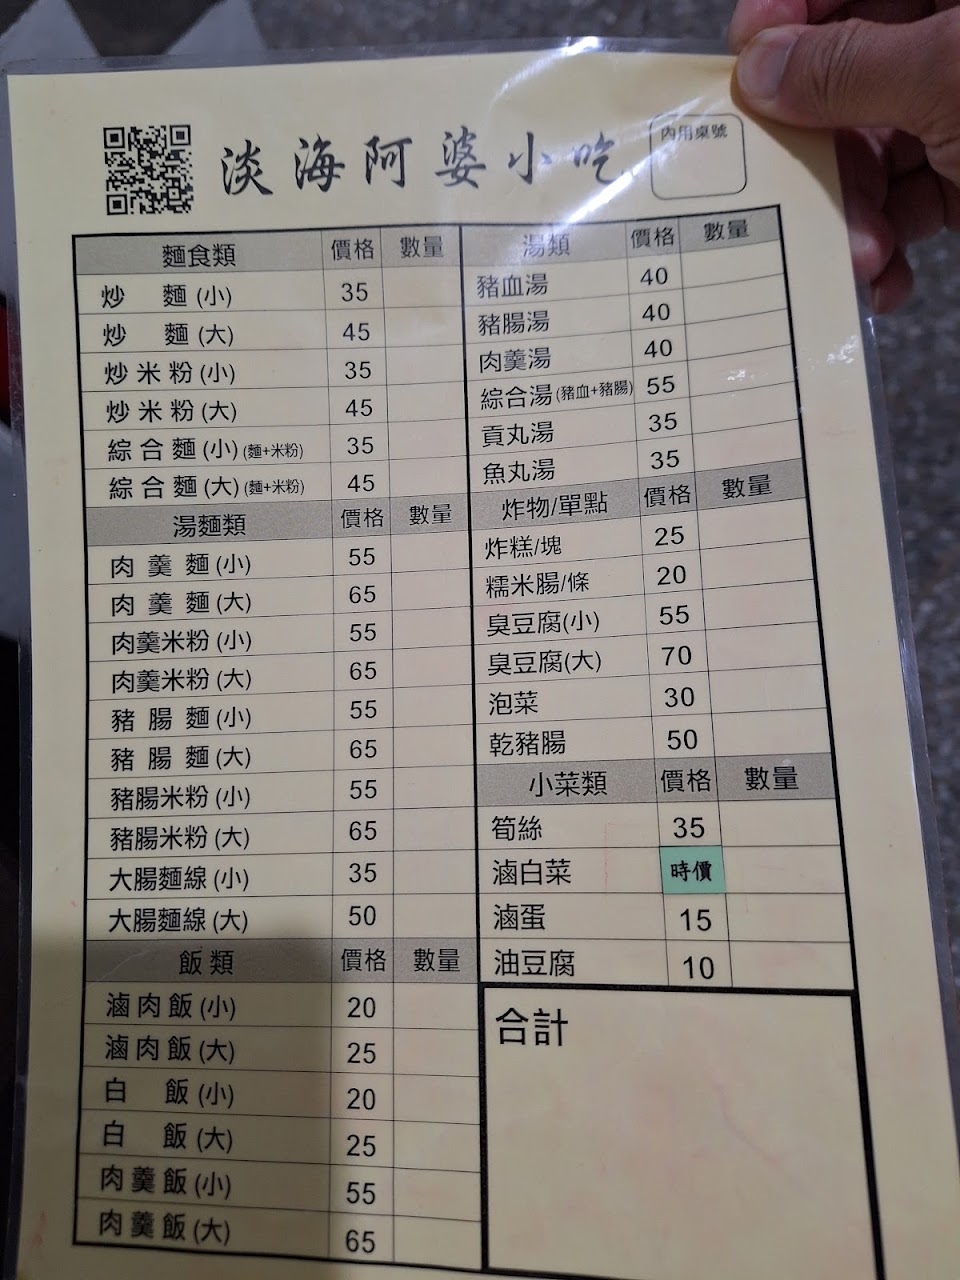 淡海阿婆小吃
內用桌號
麵食類 價格 數量
炒 麵 (小) 35
炒 麵 (大) 45
炒米粉 (小) 35
炒米粉 (大) 45
綜合麵 (小) (麵+米粉) 35
綜合麵 (大) (麵+米粉) 45
湯麵類 價格 數量
肉羹麵 (小) 55
肉羹麵 (大) 65
肉羹米粉 (小) 55
肉羹米粉 (大) 65
豬腸麵 (小) 55
豬腸麵 (大) 65
豬腸米粉 (小) 55
豬腸米粉 (大) 65
大腸麵線 (小) 35
大腸麵線 (大) 50
飯類 價格 數量
滷肉飯 (小) 20
滷肉飯 (大) 25
白 飯 (小) 20
白 飯 (大) 25
肉羹飯 (小) 55
肉羹飯 (大) 65
湯類 價格 數量
豬血湯 40
豬腸湯 40
肉羹湯 40
綜合湯 (豬血+豬腸) 55
貢丸湯 35
魚丸湯 35
炸物/單點 價格 數量
炸糕/塊 25
糯米腸/條 20
臭豆腐(小) 55
臭豆腐(大) 70
泡菜 30
乾豬腸 50
小菜類 價格 數量
筍絲 35
滷白菜 時價
滷蛋 15
油豆腐 10
合計